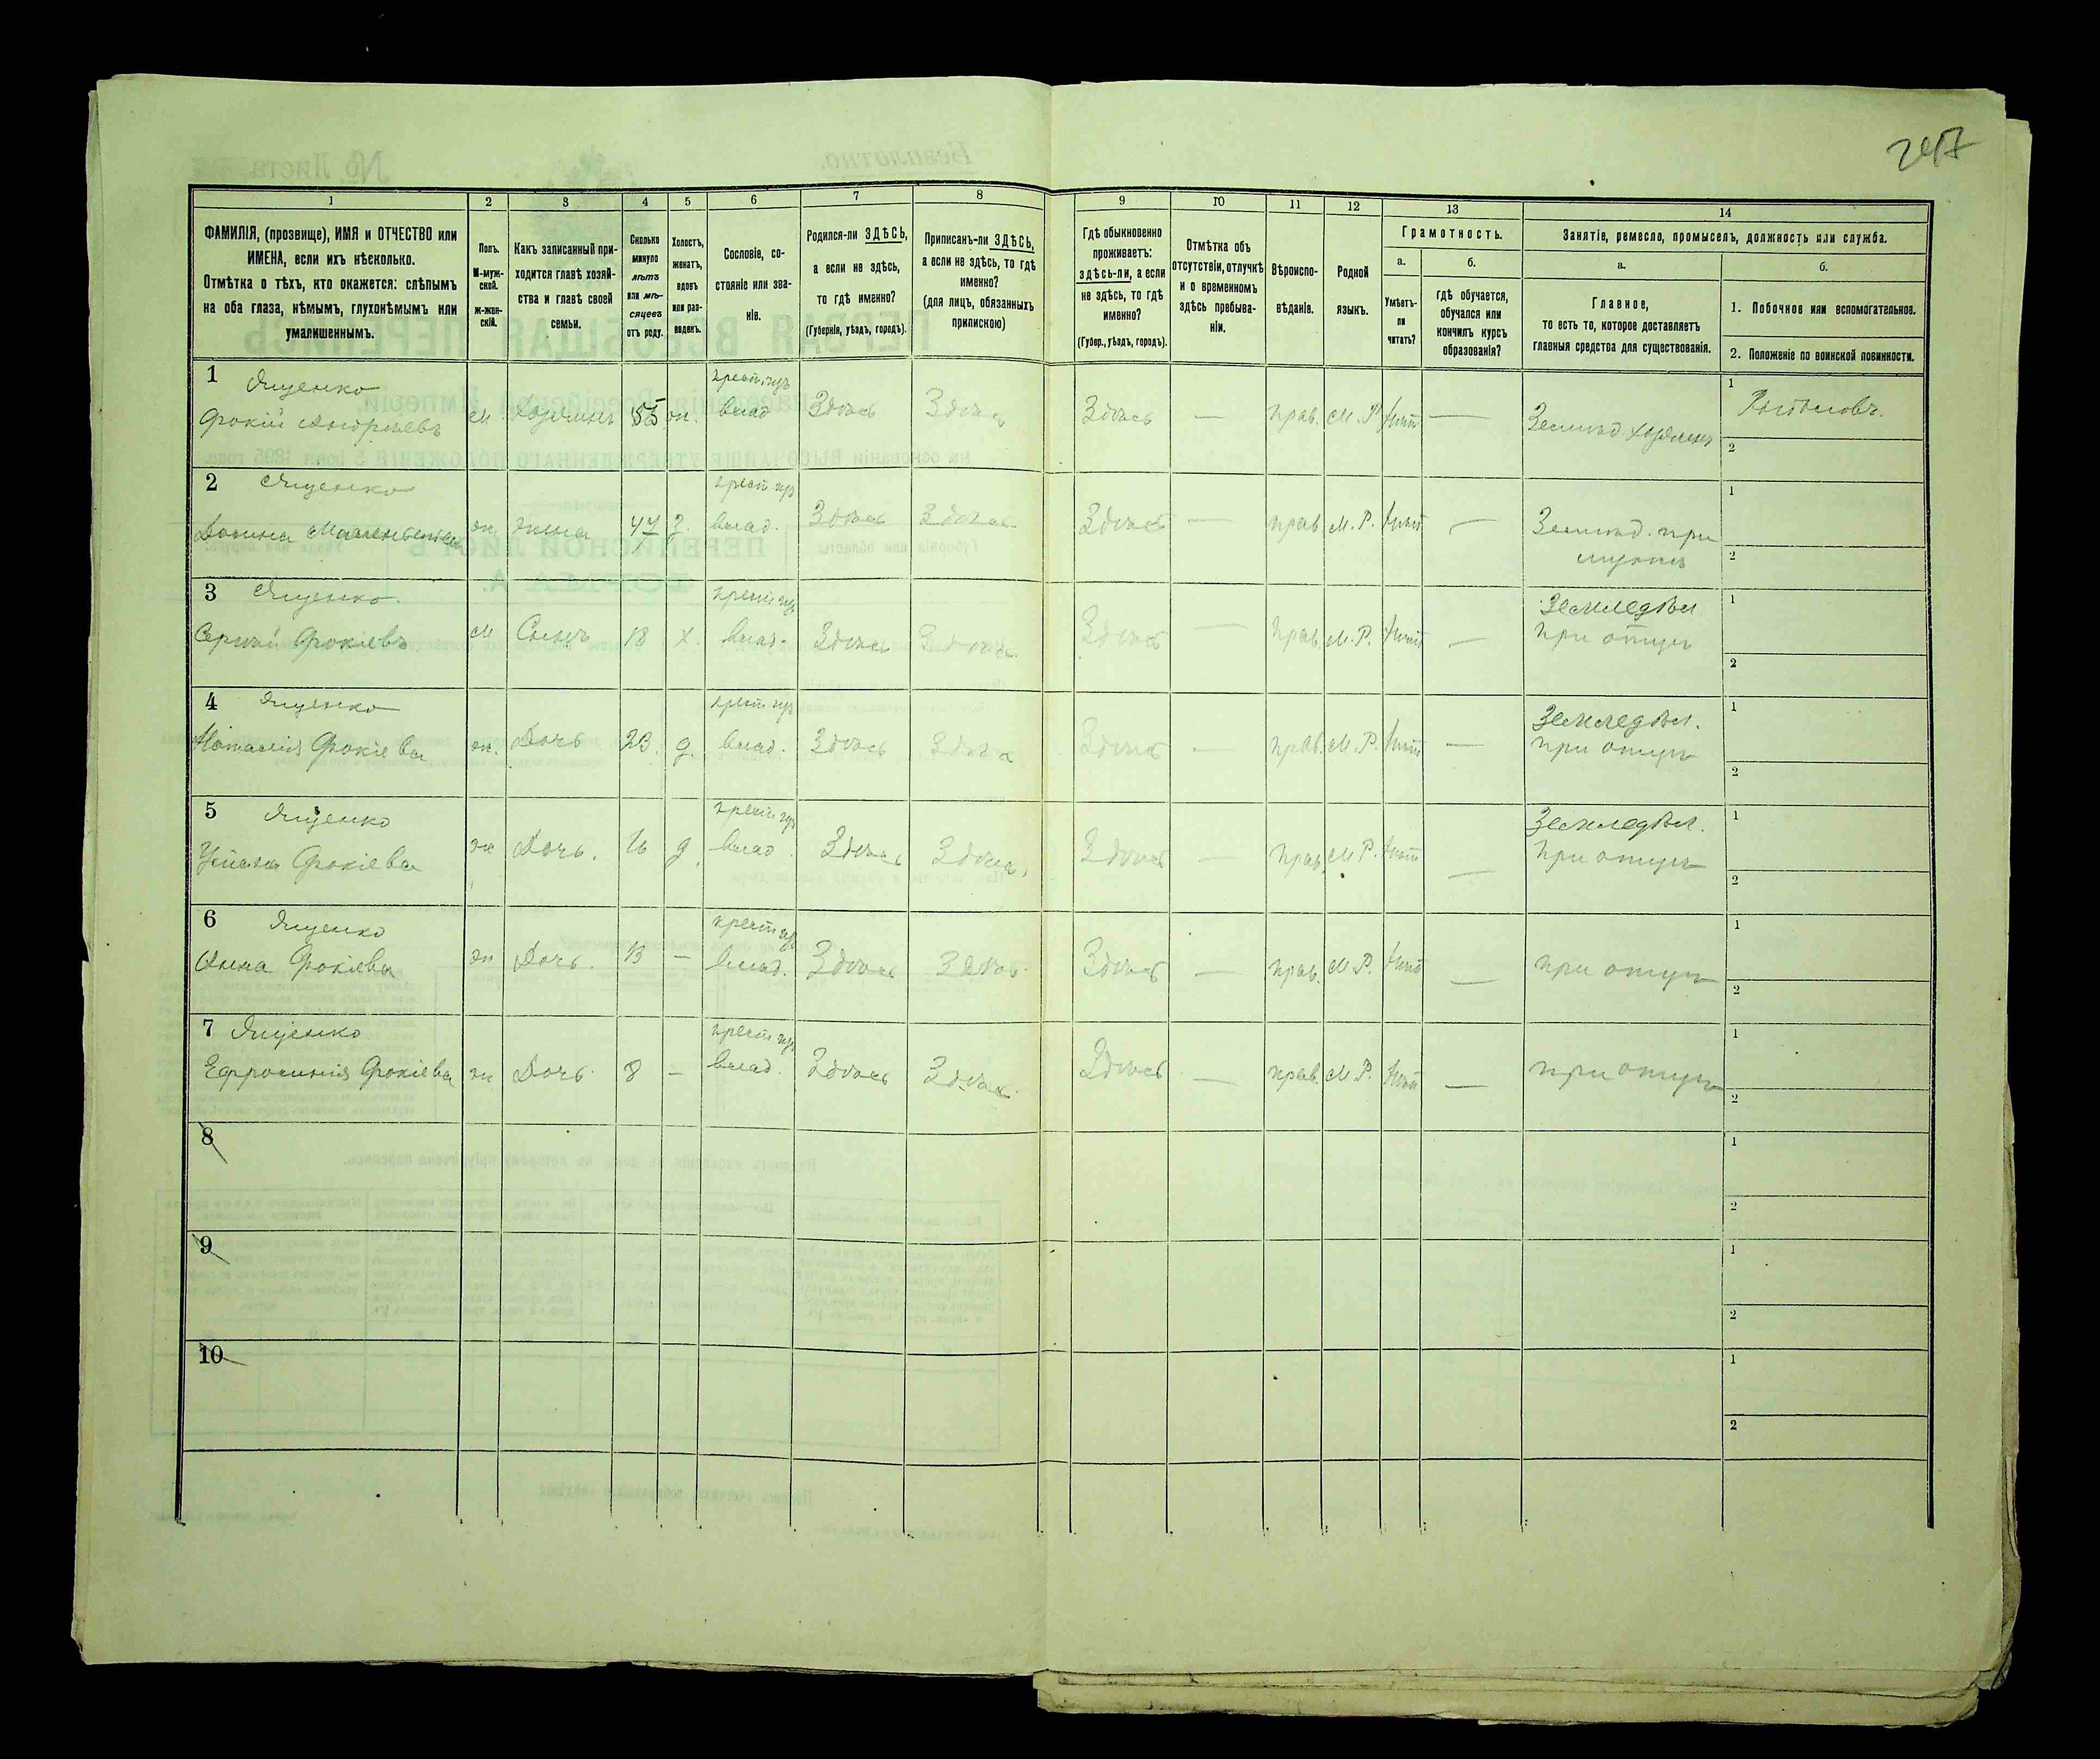 247
1
2
3
4
5
6
7
8
9
10
11
12
13
14
ФАМИЛІЯ, (прозвище), ИМЯ и ОТЧЕСТВО или
ИМЕНА, если ихъ нѣсколько.
Отмѣтка о тѣхъ, кто окажется: слѣпымъ
на оба глаза, нѣмымъ, глухонѣмымъ или
умалишеннымъ.
Полъ.
М-муж-
ской.
ж-жен-
скій.
Какъ записанный при-
ходится главѣ хозяй-
ства и главѣ своей
семьи.
Сколько
минуло
лѣтъ
или мѣ-
сяцевъ
отъ роду.
Холостъ,
женатъ,
вдовъ
или раз-
веденъ.
Сословіе, со-
стояніе или зва-
ніе.
Родился-ли ЗДѢСЬ,
а если не здѣсь,
то гдѣ именно?
(Губернія, уѣздъ, городъ).
Приписанъ-ли ЗДѢСЬ,
а если не здѣсь, то гдѣ
именно?
(для лицъ, обязанныхъ
припискою)
Гдѣ обыкновенно
проживаетъ:
здѣсь-ли, а если
не здѣсь, то гдѣ
именно?
(Губер., уѣздъ, городъ).
Отмѣтка объ
отсутствіи, отлучкѣ
и о временномъ
здѣсь пребыва-
ніи.
Вѣроиспо-
вѣданіе.
Родной
языкъ.
Грамотность.
а.
б.
Умѣетъ-
ли
читать?
гдѣ обучается,
обучался или
кончилъ курсъ
образованія?
Занятіе, ремесло, промыселъ, должность или служба.
а.
б.
Главное,
то есть то, которое доставляетъ
главныя средства для существованія.
1. Побочное или вспомогательное.
2. Положеніе по воинской повинности.
1 Ященко крест.
Фокій Андреевъ м хозяинъ 55 ж. влад Здѣсь Здѣсь Здѣсь — прав. М. Р. нѣт — Землед. хозяинъ
1
2
2 Ященко крест
жн жена 47 з. влад. Здѣсь Здѣсь Здѣсь — прав М. Р. нѣт — Землед. при
мужѣ
1
2
3 Ященко крест
Сергѣй Фокіевъ м Сынъ 18 х. влад. Здѣсь Здѣсь Здѣсь — прав. М. Р. нѣт — Земледѣл.
при отцѣ
1
2
4 Ященко крест
Наталія Фокіева жн. Дочь 23. д. влад. Здѣсь Здѣсь Здѣсь — прав. М. Р. нѣт — Земледѣл.
при отцѣ
1
2
5 Ященко крест
Фокіева жн Дочь. 16 д. влад. Здѣсь Здѣсь Здѣсь — прав. М. Р. нѣт — Земледѣл.
при отцѣ
1
2
6 Ященко крест
Анна Фокіева жн Дочь. 13 — влад. Здѣсь Здѣсь Здѣсь — прав. М. Р. нѣт — при отцѣ
1
2
7 Ященко крест
Ефросинія Фокіева жн Дочь. 8 — влад. Здѣсь Здѣсь Здѣсь — прав. М. Р. нѣт — при отцѣ
1
2
8
1
2
9
1
2
10
1
2